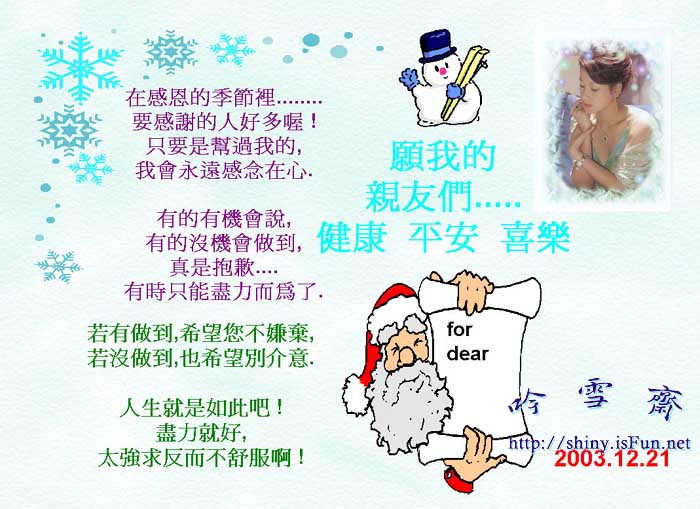 在感恩的季節裡........
要感謝的人好多喔！
只要是幫過我的,
我會永遠感念在心.
有的有機會說,
有的沒機會做到,
真是抱歉....
有時只能盡力而為了.
若有做到,希望您不嫌棄,
若沒做到,也希望別介意.
人生就是如此吧！
盡力就好,
太強求反而不舒服啊！
願我的
親友們.....
健康 平安 喜樂
for
dear
吟雪齋
http://shiny.isFun.net
2003.12.21